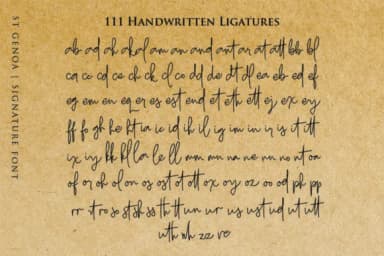 111 Handwritten Ligatures
ST GENOA | SIGNATURE FONT
ab ad ah akal am an and ant ar at att bb bl
ca cc cd ce ch ck cl co dd de dt dl ea eb ed ef
eg em en eq er es est end et eth ett ej ex ey
ff fo gh he ht ia ic id ih il ig im in ir is it itt
ix iy kk kl la le ll mm mn na ne nn no nt oa
of or oh ol on os ost ot ott ox oy oz oo od ph pp
rr st ro so st sh ss th tt un ur us ust ud ut utt
uth wh zz ve